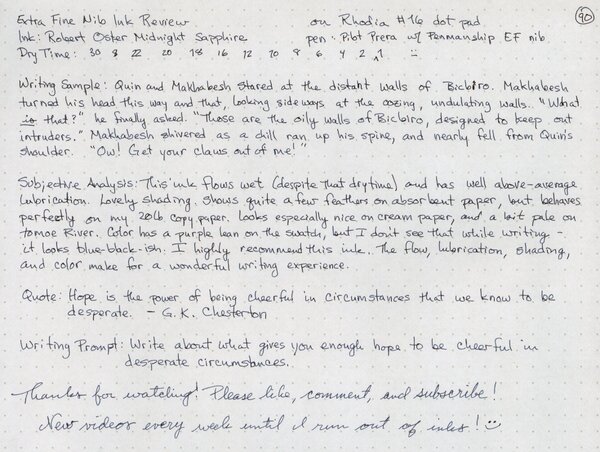 Extra Fine Nib Ink Review on Rhodia #16 dot pad 90
Ink: Robert Oster Midnight Sapphire pen: Pilot Prera w/ Penmanship EF nib
Dry Time: 30 8 22 20 18 16 12 10 8 6 4 2 1
Writing Sample: Quin and Makhabesh stared at the distant walls of Bicbiro. Makhabesh
turned his head this way and that, looking sideways at the oozing, undulating walls. "What
is that?" he finally asked. "Those are the oily walls of Bicbiro, designed to keep out
intruders." Makhabesh shivered as a chill ran up his spine, and nearly fell from Quin's
shoulder. "Ow! Get your claws out of me!"
Subjective Analysis: This ink flows wet (despite that dry time) and has well above-average
lubrication. Lovely shading. Shows quite a few feathers on absorbent paper, but behaves
perfectly on my 20lb copy paper. Looks especially nice on cream paper, and a bit pale on
Tomoe River. Color has a purple lean on the swatch, but I don't see that while writing -
it looks blue-black-ish. I highly recommend this ink. The flow, lubrication, shading,
and color make for a wonderful writing experience.
Quote: Hope is the power of being cheerful in circumstances that we know to be
desperate. - G.K. Chesterton
Writing Prompt: Write about what gives you enough hope to be cheerful in
desperate circumstances.
Thanks for watching! Please like, comment, and subscribe!
New videos every week until I run out of inks!